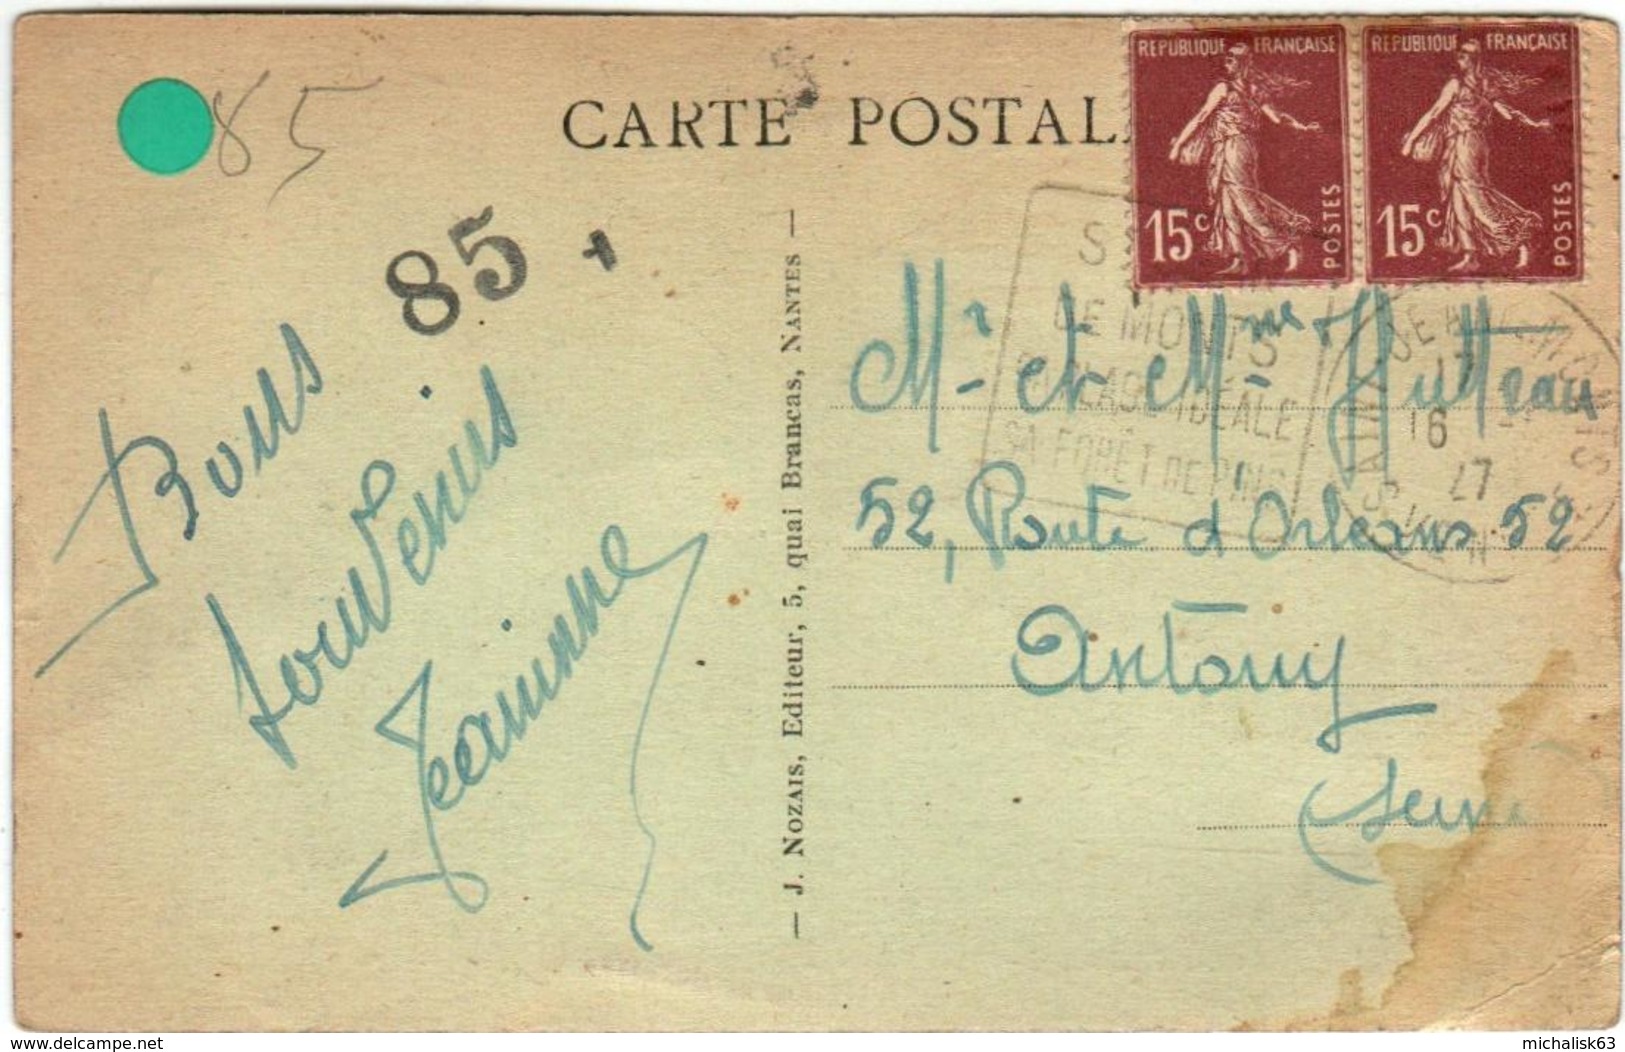 85
CARTE POSTAL
REPUBLIQUE FRANÇAISE
15c
POSTES
REPUBLIQUE FRANÇAISE
15c
POSTES
85
S
DE MONTS
PLAGE IDÉALE
SA FORÊT DE PINS
17
16
Bons
souvenirs
Jeannine
J. NOZAIS, Editeur, 5, quai Brancas, NANTES
Mr et Mme
52, Route d Orleans 52
Antony
Seine
www.delcampe.net
michalisk63